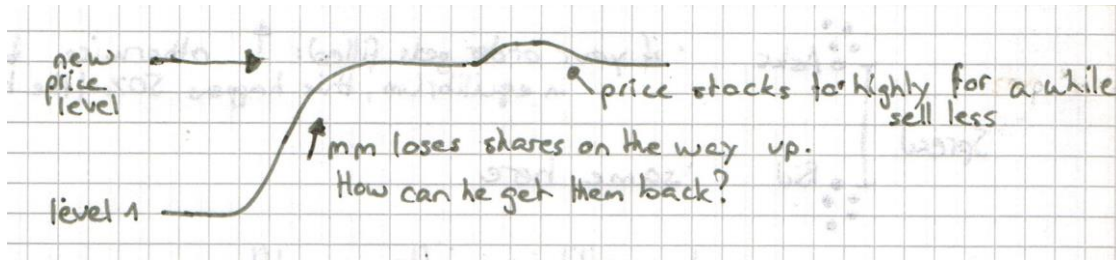 new
price
level
price stocks to highly for a while
sell less
mm loses shares on the way up.
How can he get them back?
level 1